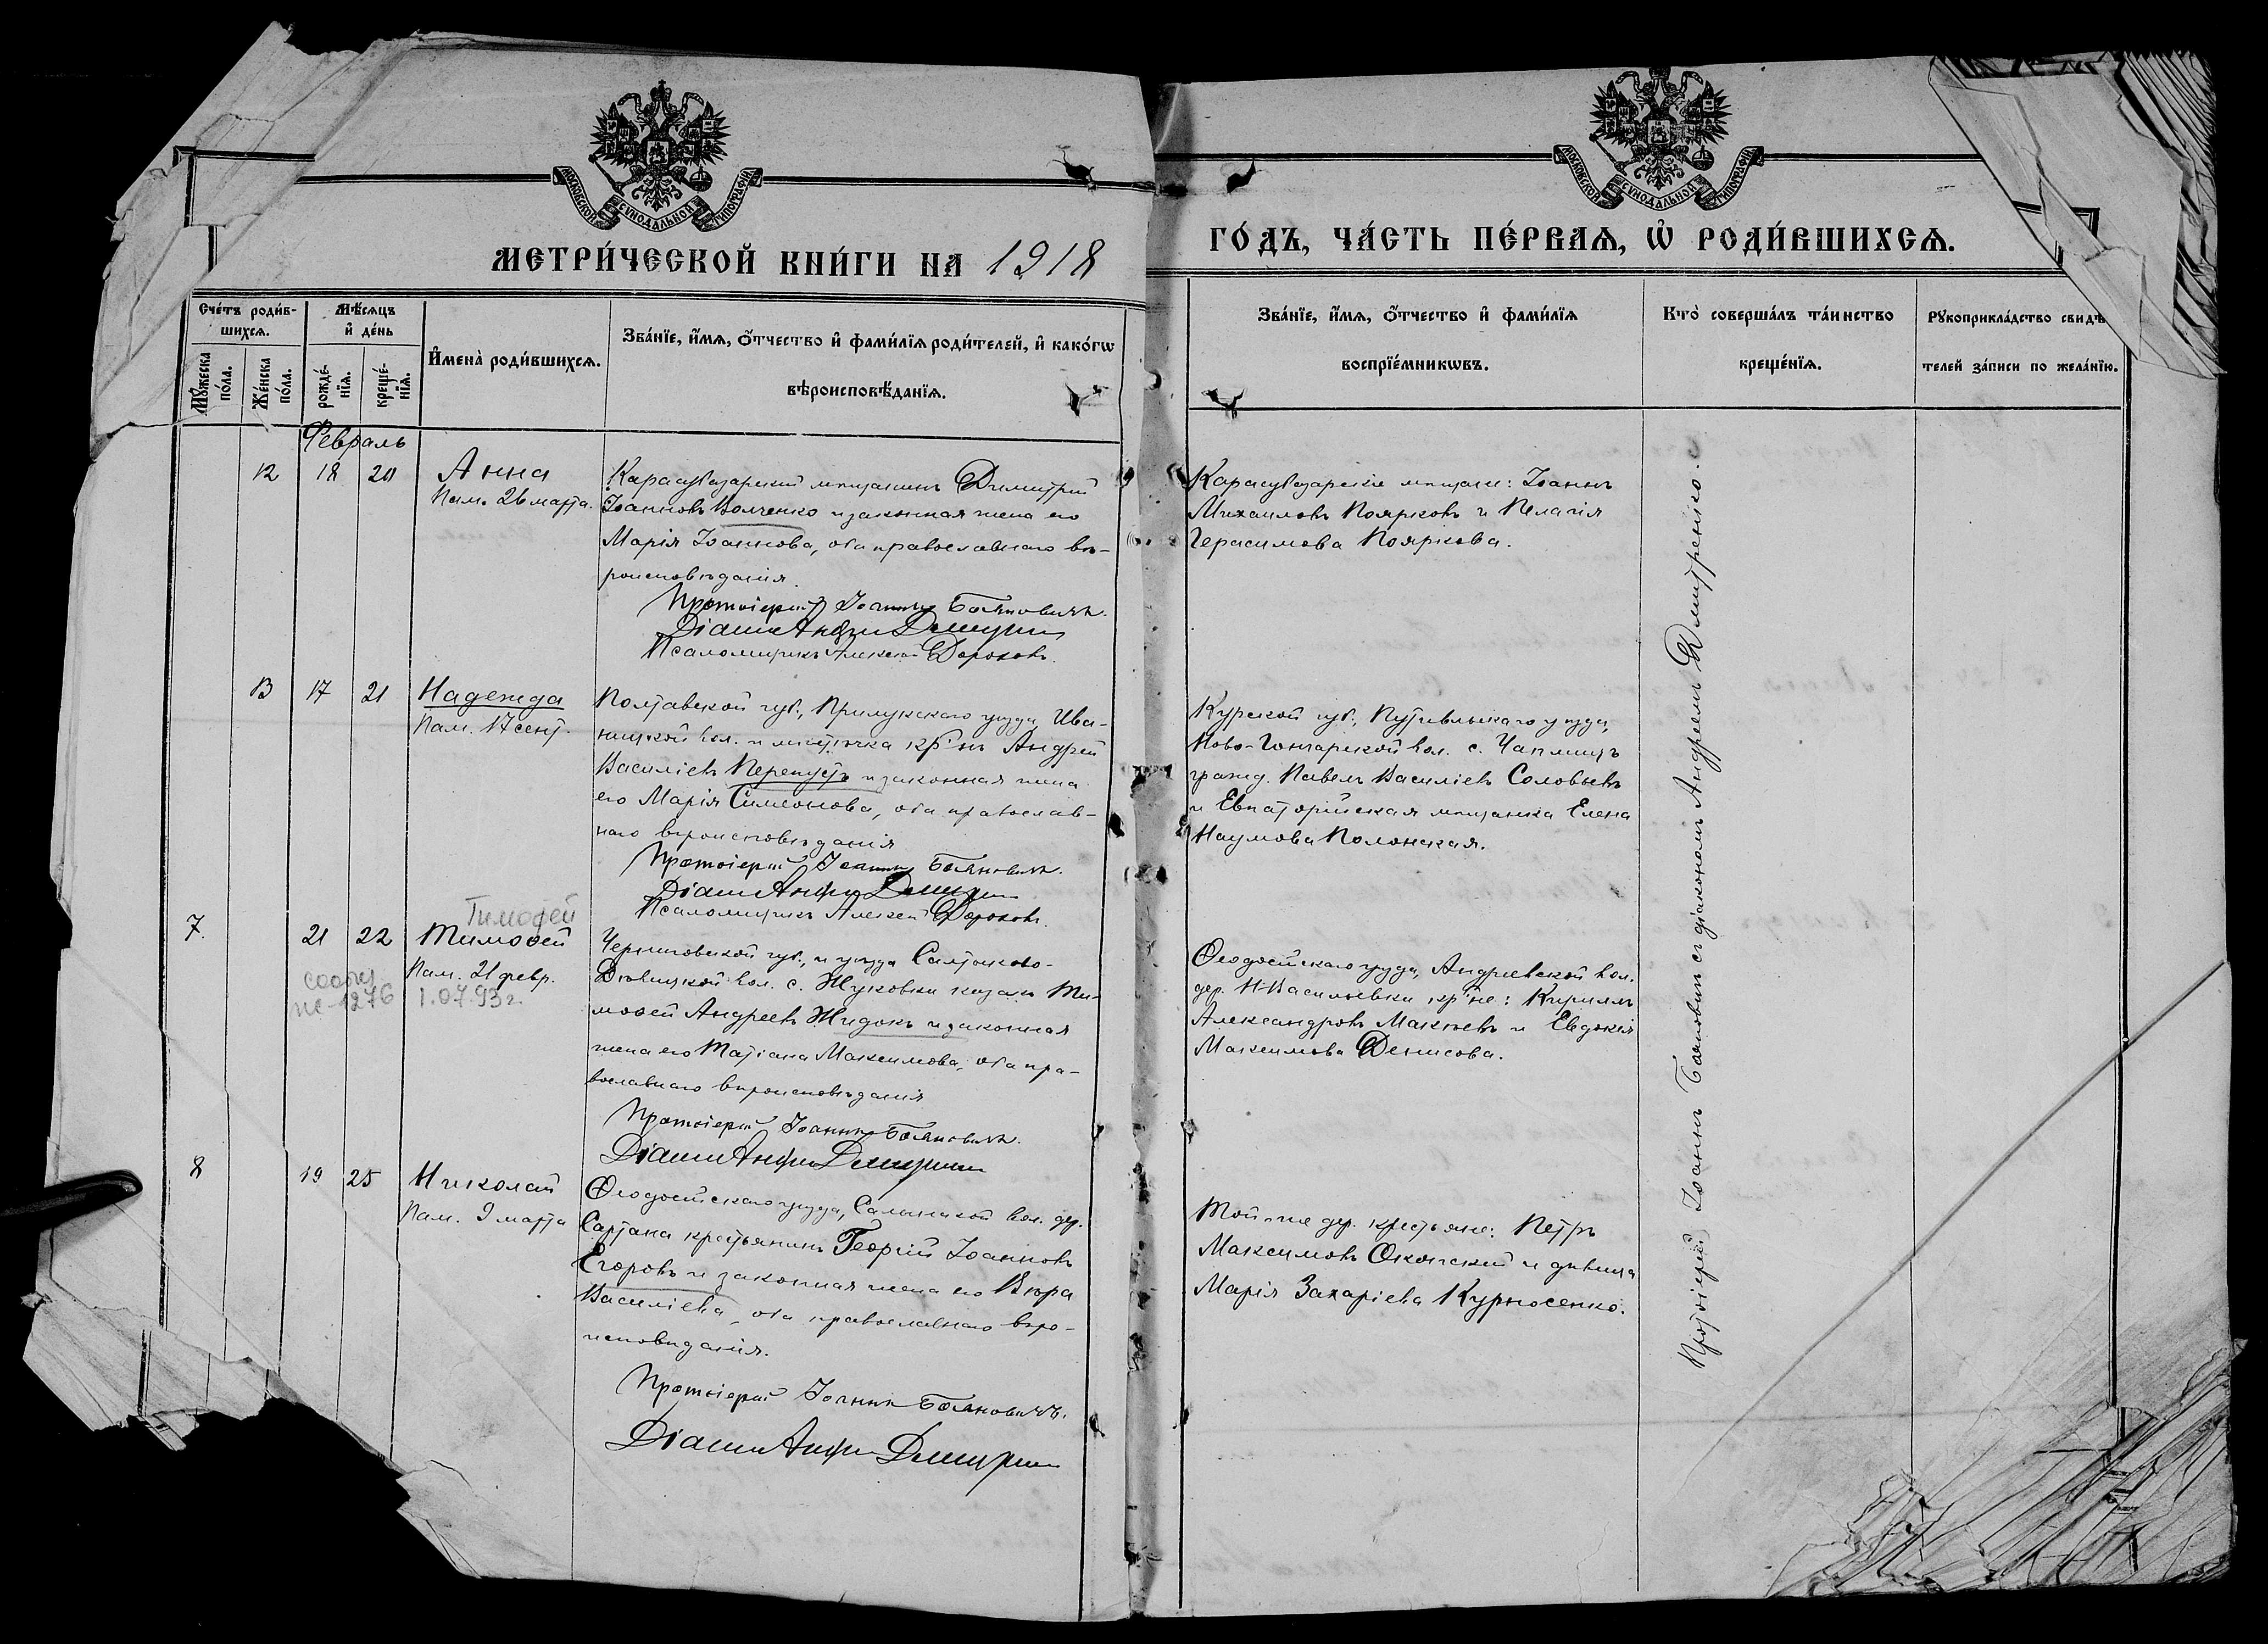 МОСКОВСКОЙ СѴНОДАЛЬНОЙ ТИПОГРАФІИ
МОСКОВСКОЙ СѴНОДАЛЬНОЙ ТИПОГРАФІИ
МЕТРИ́ЧЕСКОЙ КНИ́ГИ НА 1918
ГО́ДЪ, ЧА́СТЬ ПЕ́РВАѦ, Ѡ҆ РОДИ́ВШИХСѦ.
Сче́тъ роди́в-
шихсѧ.
Мꙋ́жеска по́ла.
Же́нска по́ла.
Мѣ́сѧцъ
и҆ де́нь
рожде́-
нїѧ.
креще́-
нїѧ.
И҆мена̀ роди́вшихсѧ.
Зва́нїе, и҆́мѧ, ѻ҆́тчество и҆ фами́лїѧ роди́телей, и҆ како́гѡ
вѣроисповѣ́данїѧ.
Зва́нїе, и҆́мѧ, ѻ҆́тчество и҆ фами́лїѧ
воспрїе́мникѡвъ.
Кто̀ соверша́лъ та́инство
креще́нїѧ.
Рꙋкоприкла́дство свидѣ́
телей за́писи по жела́нїю.
Февраль
12 18 20 Анна
Пам. 26 марта.
Карасубазарскій мѣщанинъ Димитрій
Іоанновъ Волченко и законная жена его
Марія Іоаннова, оба православнаго вѣ-
роисповѣданія.
Протоіерей Іоаннъ Бояновичъ.
Діаконъ Андрей Дмитренко
Псаломщикъ Алексей Дороховъ.
Карасубазарскіе мѣщане: Іоаннъ
Михаиловъ Поярковъ и Пелагія
Герасимова Пояркова.
13 17 21 Надежда
Пам. 17 сент.
Полтавской губ., Прилукскаго уезда, Ива-
ницкой вол. и мѣстечка кр-нъ Андрей
Василіевъ Перепустъ и законная жена
его Марія Симеонова, оба православ-
наго вѣроисповѣданія
Протоіерей Іоаннъ Бояновичъ.
Діаконъ Андрей Дмитренко
Псаломщикъ Алексей Дороховъ.
Курской губ., Путивльскаго уезда,
Ново-Гончарской вол. с.
гражд. Павелъ Василіевъ Соловьевъ
и Евпаторійская мѣщанка Елена
Наумова Полонская.
Тимофей
7. 21 22 Тимоѳей
Пам. 21 февр.
сообщ
1.07.93г.
Черниговской губ., и уезда Салтыково-
Дѣвицкой вол. с. Жуковки казакъ Ти-
моѳей Андреевъ Жидокъ и законная
жена его Татіана Максимова, оба пра-
вославнаго вѣроисповѣданія
Протоіерей Іоаннъ Бояновичъ.
Діаконъ Андрей Дмитренко
Ѳеодосійскаго уезда, Андреевской вол.
дер. Н-Васильевки кр-не: Кириллъ
Александровъ Макѣевъ и Евдокія
Максимова Денисова.
8 19 25 Николай
Пам. 9 марта
Ѳеодосійскаго уезда, Салынской вол. дер.
Сартана крестьянинъ Георгій Іоанновъ
Егоровъ и законная жена его Вѣра
Василіева, оба православнаго вѣро-
исповѣданія.
Протоіерей Іоаннъ Бояновичъ.
Діаконъ Андрей Дмитренко
Той-же дер. крестьяне: Петръ
Максимовъ Окопский и дѣвица
Марія Захаріева Курносенко.
Протоіерей Іоаннъ Бояновичъ съ діакономъ Андреемъ Дмитренко.